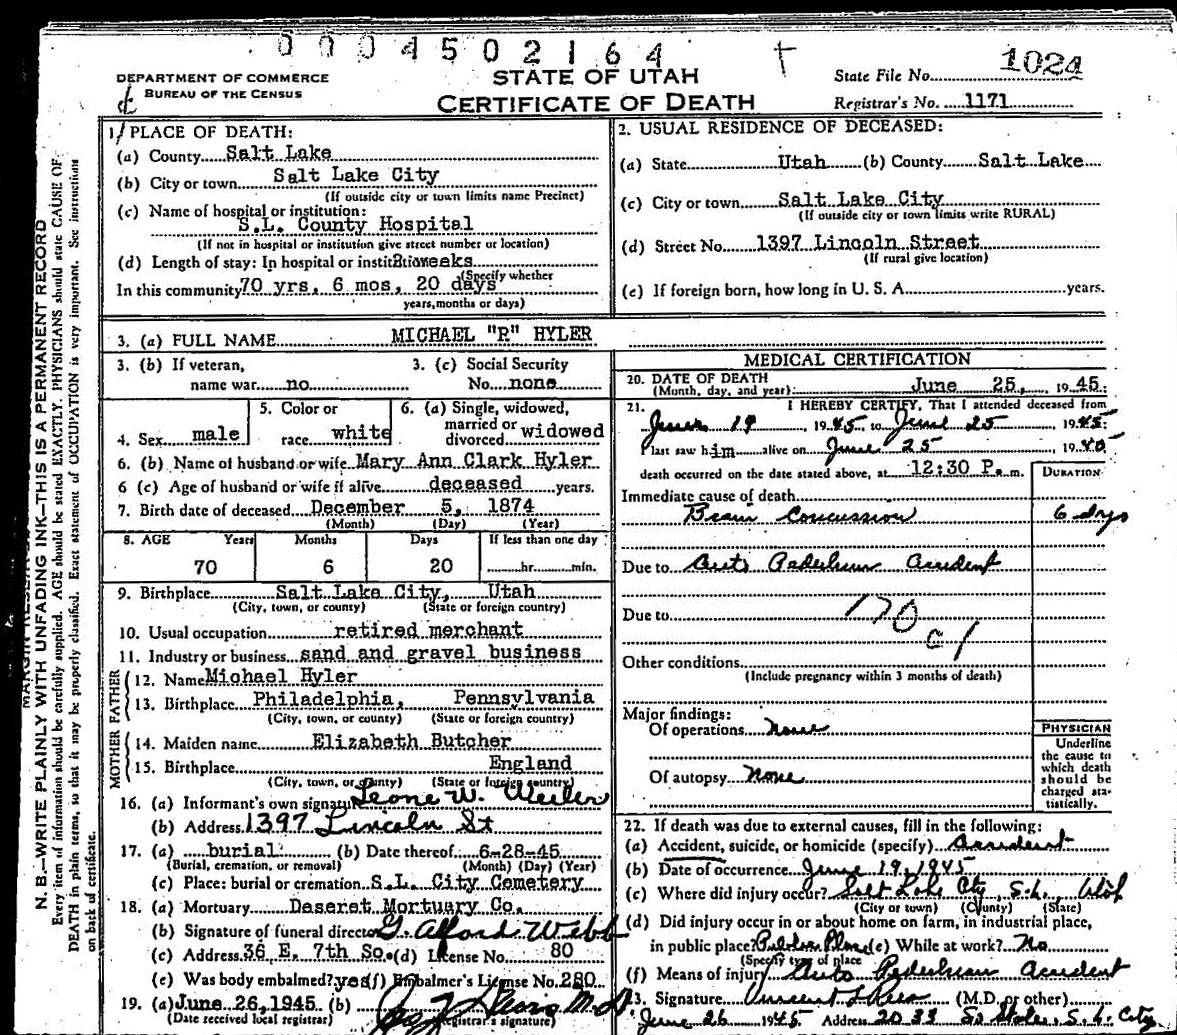 0004502164
1024
DEPARTMENT OF COMMERCE
BUREAU OF THE CENSUS
STATE OF UTAH
CERTIFICATE OF DEATH
State File No.
Registrar's No. 1171
N. B.—WRITE PLAINLY WITH UNFADING INK—THIS IS A PERMANENT RECORD
Every item of information should be carefully supplied. AGE should be stated EXACTLY. PHYSICIANS should state CAUSE OF
DEATH in plain terms, so that it may be properly classified. Exact statement of OCCUPATION is very important. See instructions
on back of certificate.
1. PLACE OF DEATH:
(a) County Salt Lake
(b) City or town Salt Lake City
(If outside city or town limits name Precinct)
(c) Name of hospital or institution:
S.L. County Hospital
(If not in hospital or institution give street number or location)
(d) Length of stay: In hospital or institution weeks
(Specify whether
In this community 70 yrs. 6 mos. 20 days
years, months or days)
2. USUAL RESIDENCE OF DECEASED:
(a) State Utah (b) County Salt Lake
(c) City or town Salt Lake City
(If outside city or town limits write RURAL)
(d) Street No. 1397 Lincoln Street
(If rural give location)
(e) If foreign born, how long in U. S. A. years.
3. (a) FULL NAME MICHAEL "P." HYLER
3. (b) If veteran, name war no
3. (c) Social Security No. none
4. Sex male
5. Color or race white
6. (a) Single, widowed, married or divorced widowed
6. (b) Name of husband or wife Mary Ann Clark Hyler
6 (c) Age of husband or wife if alive deceased years.
7. Birth date of deceased December 5, 1874
(Month) (Day) (Year)
8. AGE Years Months Days If less than one day
70 6 20 hr. min.
9. Birthplace Salt Lake City, Utah
(City, town, or county) (State or foreign country)
10. Usual occupation retired merchant
11. Industry or business sand and gravel business
FATHER
12. Name Michael Hyler
13. Birthplace Philadelphia, Pennsylvania
(City, town, or county) (State or foreign country)
MOTHER
14. Maiden name Elizabeth Butcher
15. Birthplace England
(City, town, or county) (State or foreign country)
16. (a) Informant's own signature Leone W. Weiler
(b) Address 1397 Lincoln St
17. (a) burial (b) Date thereof 6-28-45
(Burial, cremation, or removal) (Month) (Day) (Year)
(c) Place: burial or cremation S.L. City Cemetery
18. (a) Mortuary Deseret Mortuary Co.
(b) Signature of funeral director G. Alford Webb
(c) Address 36 E. 7th So. (d) License No. 80
(e) Was body embalmed? yes (f) Embalmer's License No. 280
19. (a) June 26, 1945 (b)
(Date received local registrar) Registrar's signature)
MEDICAL CERTIFICATION
20. DATE OF DEATH
(Month, day, and year): June 25, 1945.
21. I HEREBY CERTIFY, That I attended deceased from
June 19, 1945 to June 25 1945.
I last saw him alive on June 25 19
death occurred on the date stated above, at 12:30 P. m.
DURATION
Immediate cause of death
Brain Concussion 6 dys
Due to Auto Pedestrian Accident
Due to
170
c 1
Other conditions
(Include pregnancy within 3 months of death)
Major findings:
Of operations None
Of autopsy None
PHYSICIAN
Underline
the cause to
which death
should be
charged sta-
tistically.
22. If death was due to external causes, fill in the following:
(a) Accident, suicide, or homicide (specify) Accident
(b) Date of occurrence June 19, 1945
(c) Where did injury occur? Salt Lake City, S.L., Utah
(City or town) (County) (State)
(d) Did injury occur in or about home on farm, in industrial place,
in public place? Public Place (e) While at work? No
(Specify type of place
(f) Means of injury Auto Pedestrian Accident
23. Signature Vincent L Rees (M.D. or other)
June 26 1945 Address 2033 So State, S. L. City